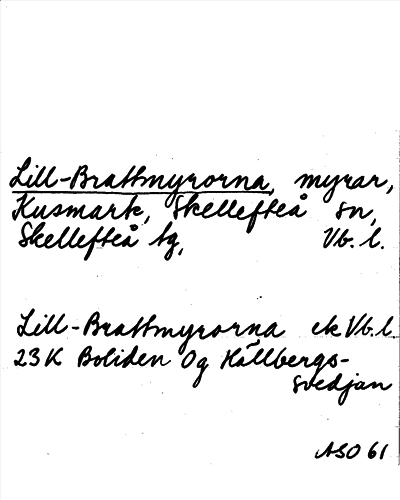 Lill-Brattmyrorna, myrar,
Kusmark, Skellefteå sn,
Skellefteå tg, Vb. l.
Lill-Brattmyrorna ek Vb. l
23K Boliden 0g Hällbergs-
svedjan
ASO 61